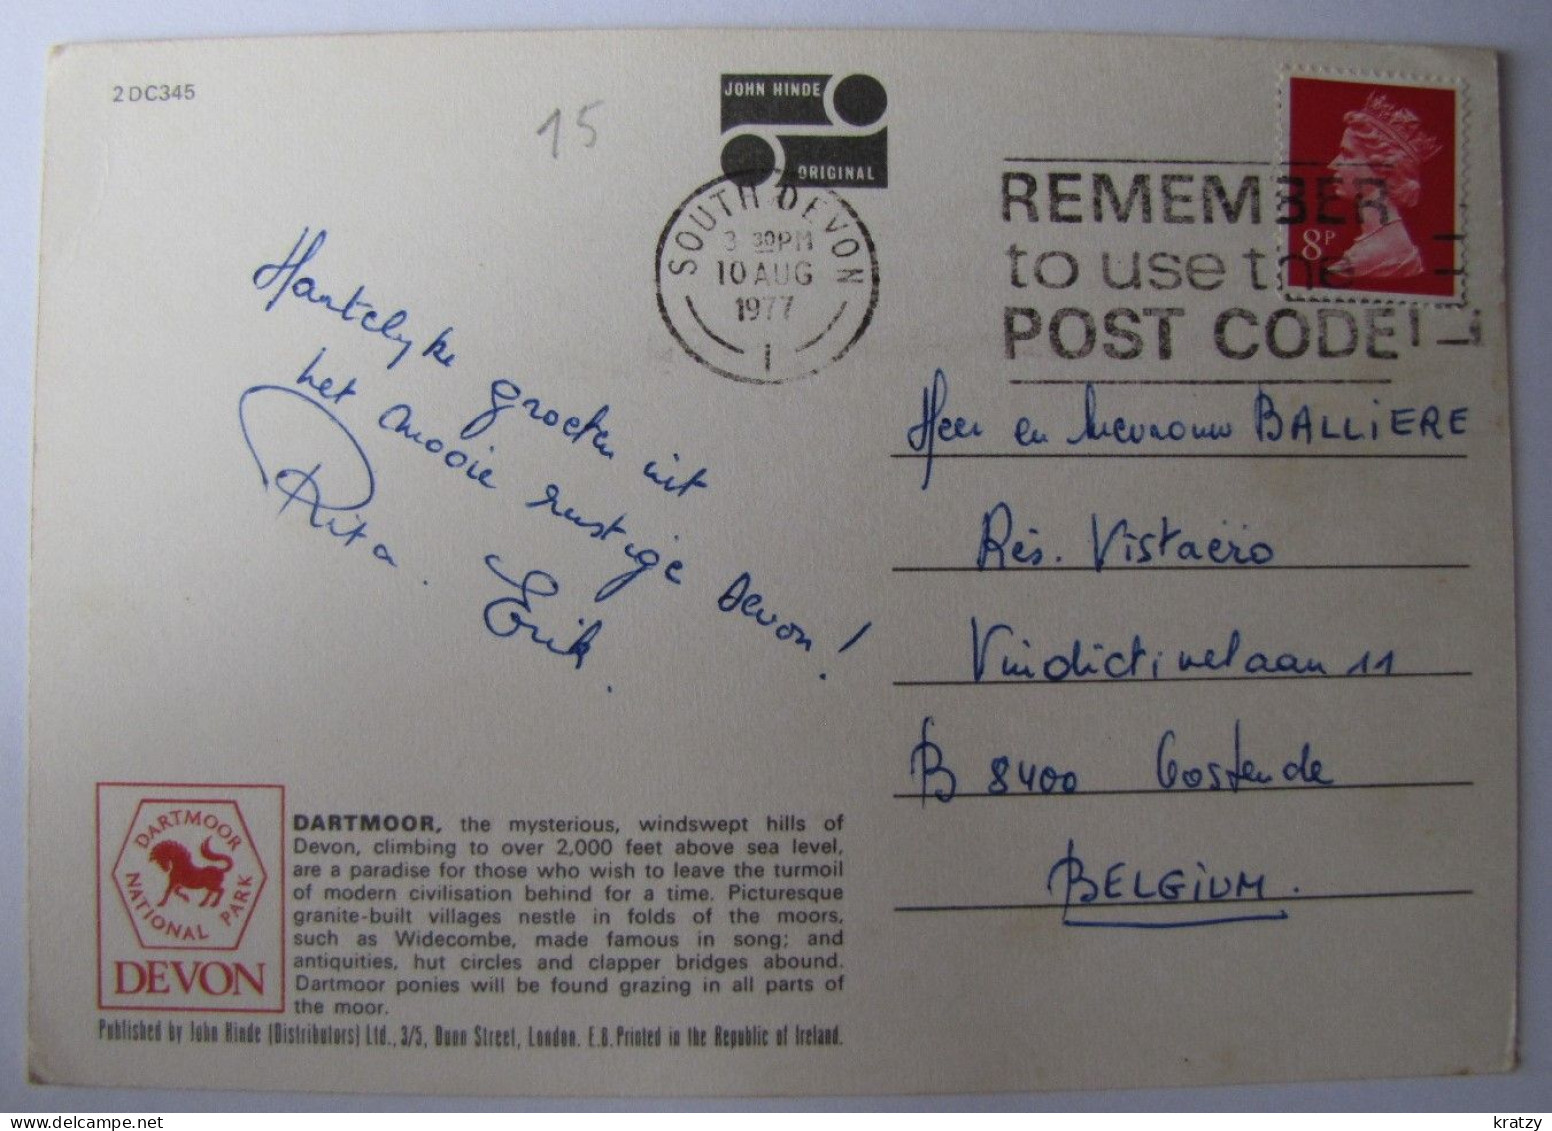 2DC345
15
JOHN HINDE
ORIGINAL
SOUTH DEVON
3 30PM
10 AUG
1977
1
REMEMBER
to use the
POST CODE!
8P
Hartelyke groeten uit
het mooie rustige Devon!
Rita. Erik.
Heer en Mevrouw BALLIERE
Rés. Vistaëro
Vindictivelaan 11
B 8400 Oostende
BELGIUM.
DARTMOOR NATIONAL PARK
DEVON
DARTMOOR, the mysterious, windswept hills of
Devon, climbing to over 2,000 feet above sea level,
are a paradise for those who wish to leave the turmoil
of modern civilisation behind for a time. Picturesque
granite-built villages nestle in folds of the moors,
such as Widecombe, made famous in song; and
antiquities, hut circles and clapper bridges abound.
Dartmoor ponies will be found grazing in all parts of
the moor.
Published by John Hinde (Distributors) Ltd., 3/5, Dunn Street, London. E.8. Printed in the Republic of Ireland.
kratzy